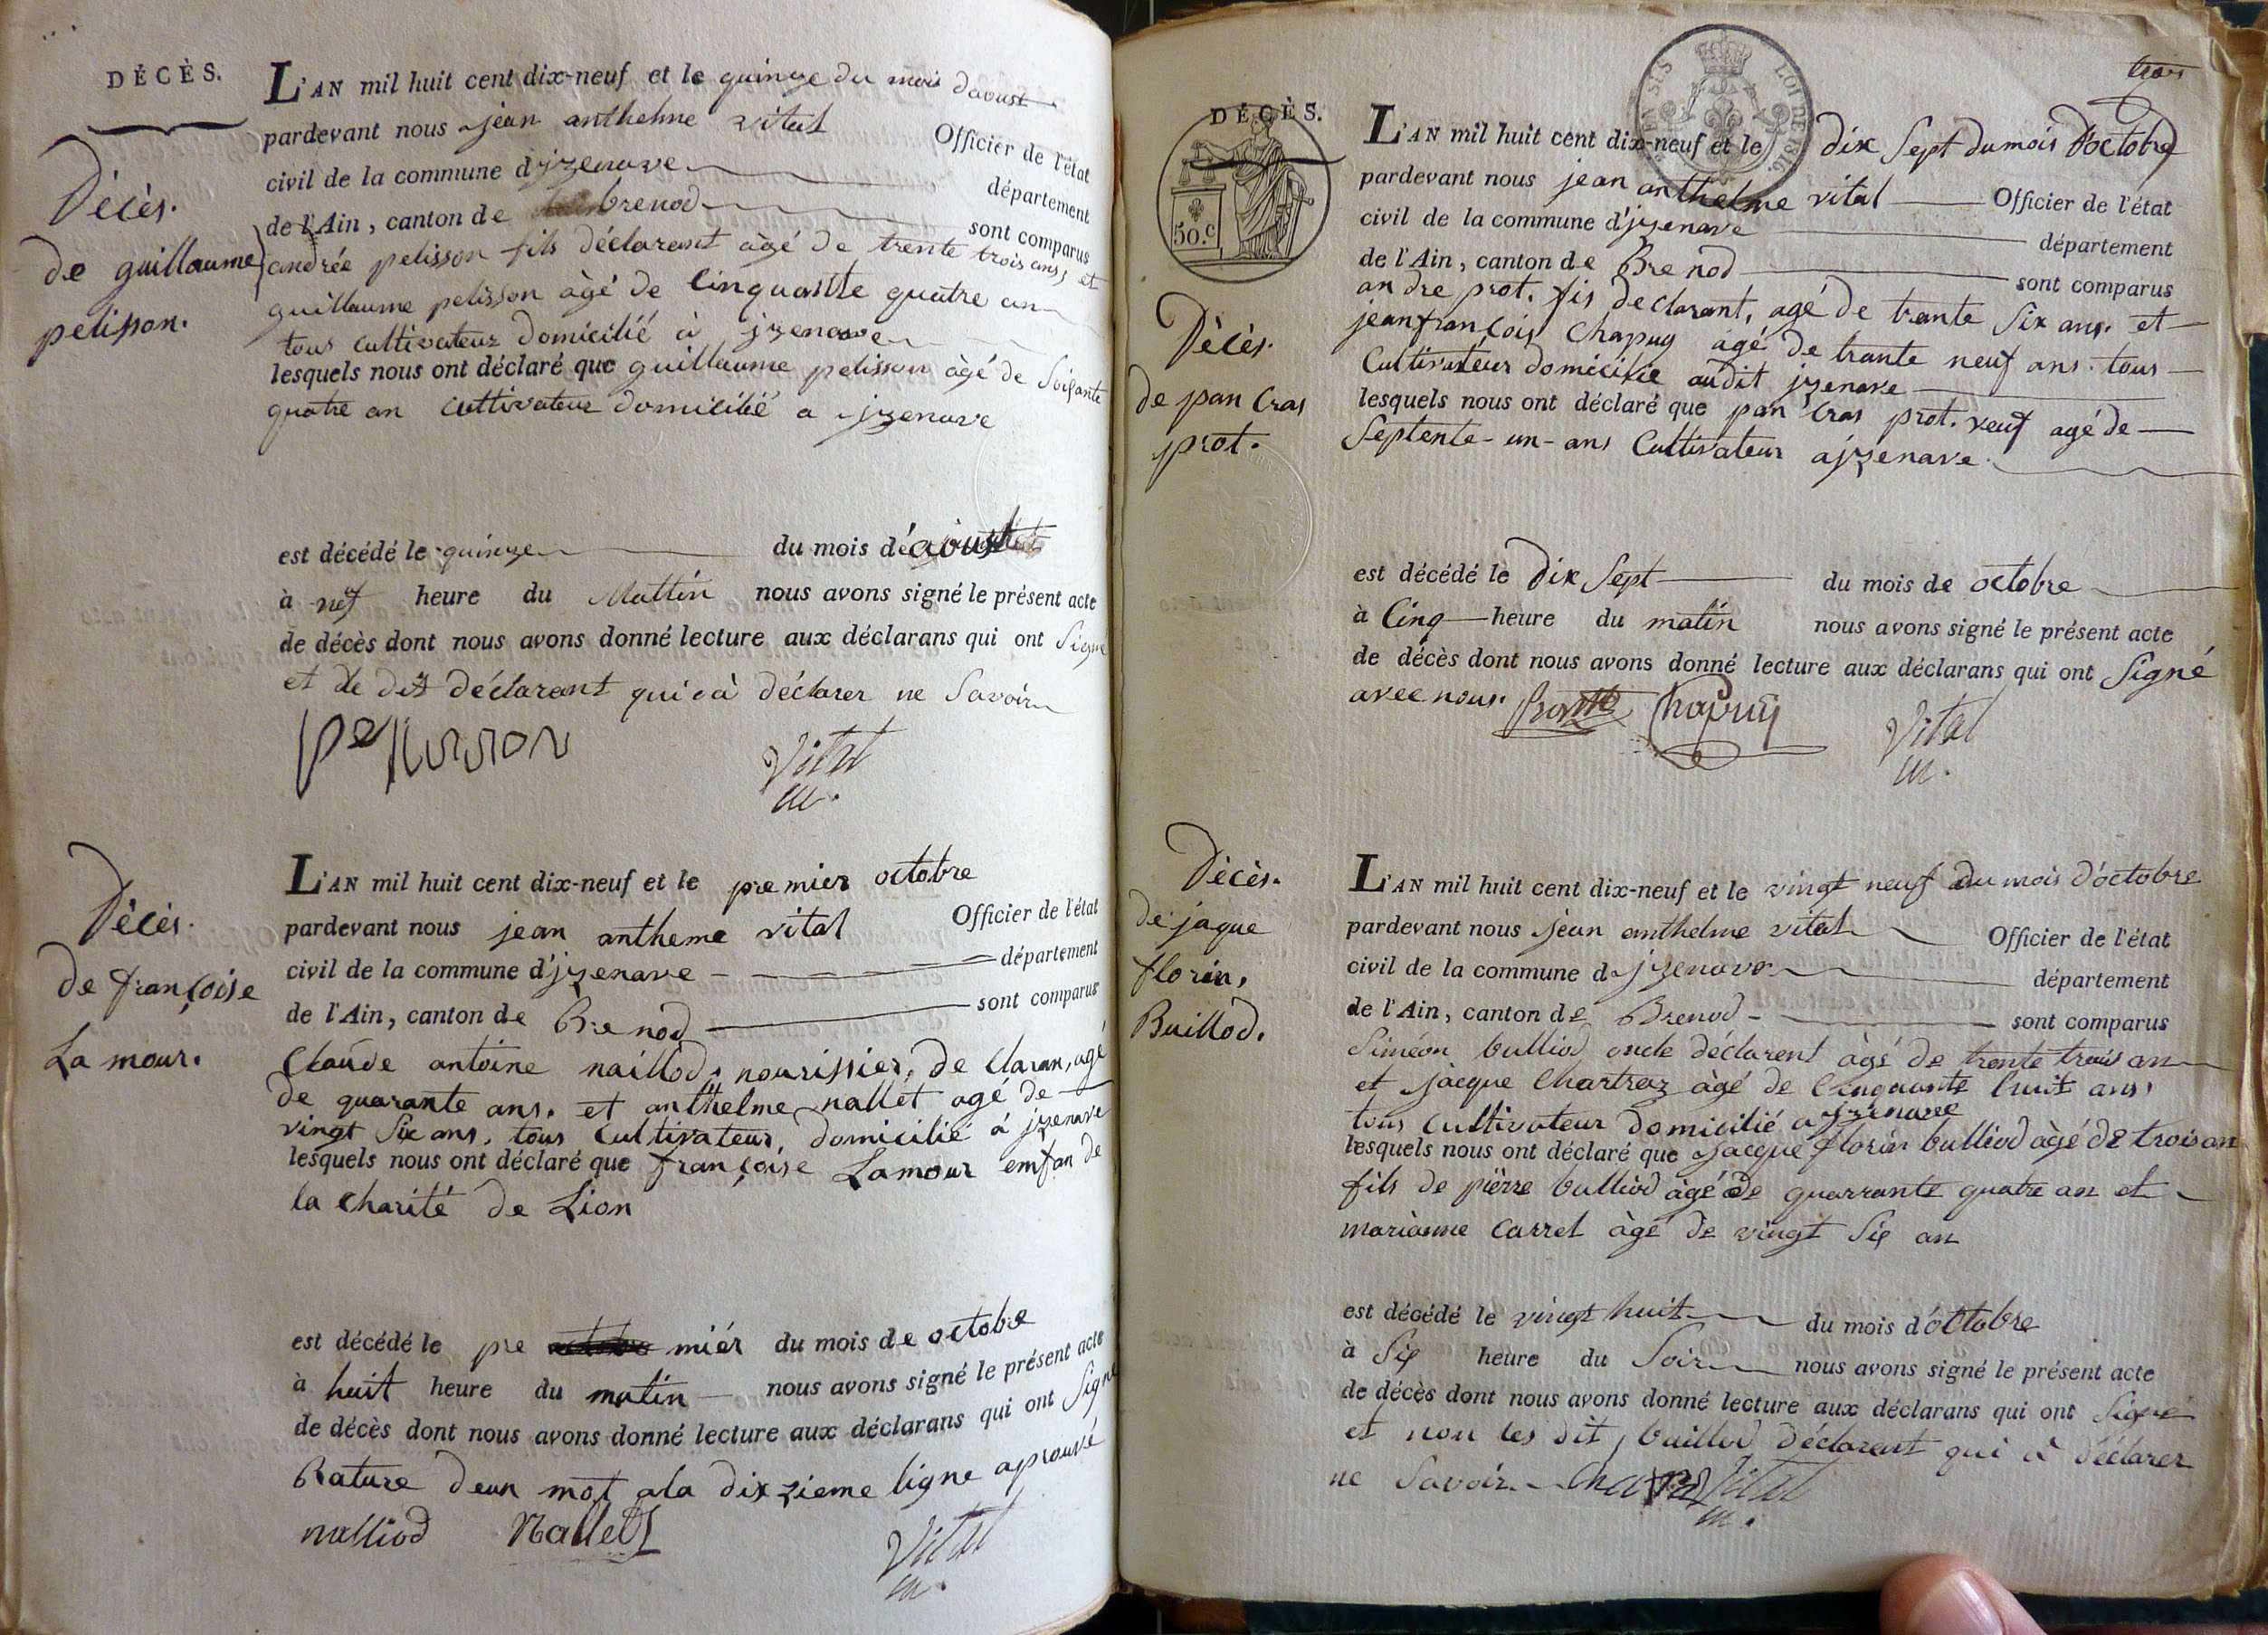 DÉCÈS.
L'AN mil huit cent dix-neuf et le quinze du mois daoust
pardevant nous jean anthelme vital Officier de l'état
civil de la commune d'jzenave département
de l'Ain, canton de brenod sont comparus
andrée pelisson fils déclarant àgé de trente trois ans, et
guillaume pelisson àgé de Cinquante quatre an
tous cultivateur domicilié à jzenave
lesquels nous ont déclaré que guillaume pelisson àgé de Soisante
quatre an cultivateur domicilié a jzenave
Décès.
de guillaume
pelisson.
est décédé le quinze du mois de aoust
à nef heure du Mattin nous avons signé le présent acte
de décès dont nous avons donné lecture aux déclarans qui ont Signé
et le dit déclarant qui à déclarer ne Savoir
Vital
m.
L'AN mil huit cent dix-neuf et le premier octobre
pardevant nous jean antheme vital Officier de l'état
civil de la commune d'jzenave département
de l'Ain, canton de Brenod sont comparus
Claude antoine naillod, nourissier, de Claran, agé
de quarante ans. et anthelme nallet agé de
vingt Six ans. tous Cultivateur, domicilié à jzenave
lesquels nous ont déclaré que françoise Lamour emfan de
la Charité de Lion
Décès.
de françoise
La mour.
est décédé le pre miér du mois de octobre
à huit heure du matin nous avons signé le présent acte
de décès dont nous avons donné lecture aux déclarans qui ont Signé
Rature deun mot ala dixzieme ligne aprouvé
nalliod Nallet Vital
m.
DÉCÈS.
50.c
LOI DE 1816
L'AN mil huit cent dix-neuf et le dix Sept du mois D'octobre
pardevant nous jean anthelme vital Officier de l'état
civil de la commune d'jzenave département
de l'Ain, canton de Brenod sont comparus
andre prot. fis declarant, agé de trante Six ans. et
jeanfrançois Chapuy agé de trante neuf ans. tous
Cultivateur domicilie audit jzenave
lesquels nous ont déclaré que pan cras prot. veuf agé de
Septente-un-ans Cultivateur ajzenave
Décès.
de pan Cras
prot.
est décédé le Dix Sept du mois de octobre
à Cinq heure du matin nous avons signé le présent acte
de décès dont nous avons donné lecture aux déclarans qui ont Signé
avec nous. Chapuy Vital
m.
L'AN mil huit cent dix-neuf et le vingt neuf du mois d'octobre
pardevant nous jean anthelme vital Officier de l'état
civil de la commune d'jzenave département
de l'Ain, canton de Brenod sont comparus
Siméon bulliod oncle déclarent àgé de trente trois an
et jàcque Chartraz àgé de Cinquante huit ans,
tous Cultivateur domicilié a jzenave
lesquels nous ont déclaré que jacque florin bulliod àgé de trois an
fils de pièrre bulliod àgé de quarrante quatre an et
mariànne Carrel àgé de vingt Six an
Décès.
de jaque
florin,
Buillod.
est décédé le vingt huit du mois d'octobre
à Six heure du Soir nous avons signé le présent acte
de décès dont nous avons donné lecture aux déclarans qui ont Signé
et non les dit, buillod déclarent qui à déclarer
ne Savoir. Vital
m.